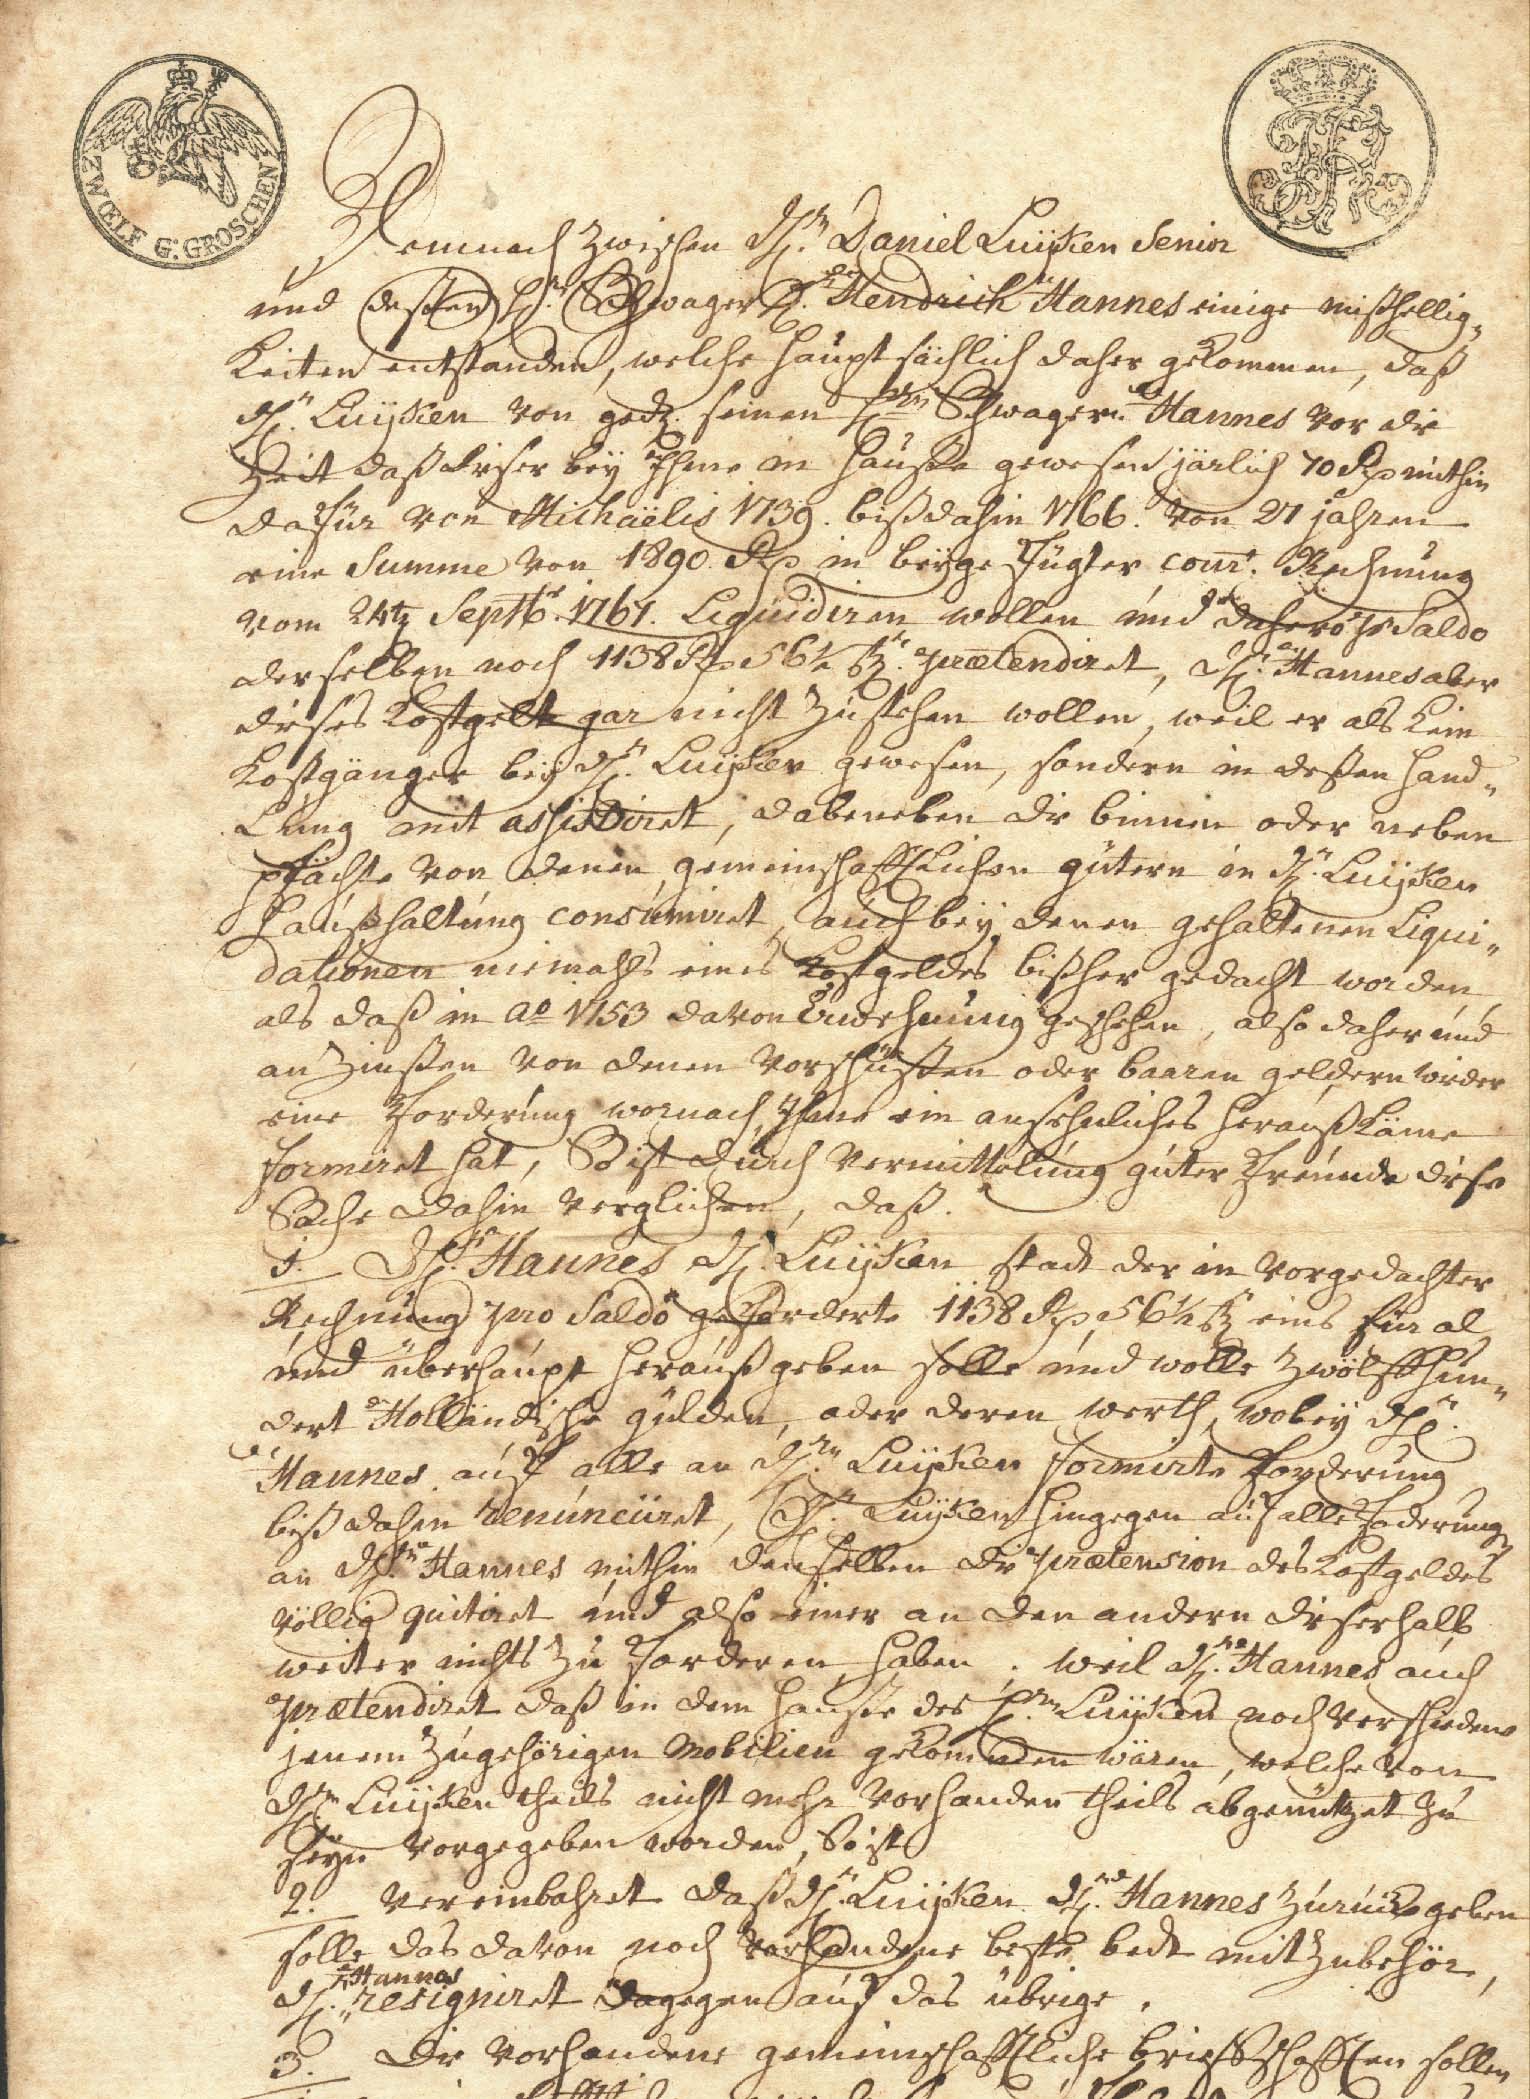 ZWŒLF G. GROSCHEN
FR
Demnach zwischen H.rn Daniel Luijken Senior
und deßen H.rn Schwager H. Hendrich Hannes einige mißhellig-
Keiten entstanden, welche hauptsächlich daher gekommen, daß
H.r Luijken von gedz. seinen H.rn Schwager Hannes vor die
Zeit daß dieser beÿ Ihme in Hauße gewesen järlich 70 Rp mithin
dafür von Michaëlis 1739. biß dahin 1766. von 27 jahren
eine Summe von 1890 Rp in beÿgefügter cour.t Rechnung
vom 24t Septb.r 1767. Liquidiren wollen und daher pr Saldo
derselben noch 1138 Rp 56¼ stz. prætendiret, H.r Hannes aber
dieses Kostgelt gar nicht zustehen wollen, weil er als Kein
Kostgänger beÿ H.r Luijken gewesen, sondern in deßen Hand-
Lung mit assistiret, dabeneben die binnen oder neben
pfächte von denen gemeinschafftlichen gütern in H.r Luijken
Haußhaltung consumiret, auch beÿ denen gehaltenen Liqui-
dationen niemahls eines Kostgeldes bißher gedacht worden,
als daß in ao 1753 davon Erwehnung geschehen, also daher und
an Zinßen von denen Vorschüßen oder baaren geldern wieder
eine Forderung wornach Ihme ein ansehnliches herauß Käme
formiret hat, So ist durch Vermittelung guter Freunde diese
Sache dahin verglichen, daß.
1. H.r Hannes H. Luijken stadt der in vorgedachter
Rechnung pro Saldo geforderte 1138 Rp 56¼ stz eins für al
und überhaupt herauß geben solle und wolle zwölffhun-
dert Holländische gülden, oder deren werth, wobeÿ H.r
Hannes auf alle an H.rn Luijken formirte Forderung
biß dahin renunciiret, H.r Luijken hingegen auf alle Foderung
an H.rn Hannes mithin denselben die prætension des Kostgeldes
völlig quitiret und also einer an den andern dieserhalb
weiter nichts zu fordern haben. weil H.r Hannes auch
prætendiret daß in dem Hauße des H.rn Luijken noch verschiedene
jenem zugehörigen Mobilien gekommen wären, welche von
H.rn Luijken theils nicht mehr vorhanden theils abgenützet zu
seÿn vorgegeben worden, So ist
2. vereinbahret daß H.r Luijken H. Hannes zurück geben
solle das davon noch vorhandene beste bedt mit Zubehör,
H. Hannes resigniret dagegen auf das übrige.
3. Die vorhandene gemeinschafftliche briefschafften sollen